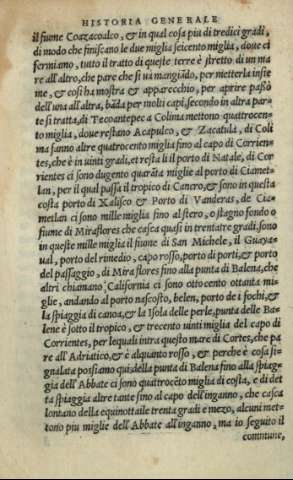 HISTORIA GENERALE
il fiume Coazacoalco, & in qual cosa piu di tredici gradi,
di modo che finiscano le due miglia seicento miglia, doue ci
fermiamo, tutto il tratto di queste terre è stretto di un ma
re all'altro, che pare che si ua mangiãdo, per metterla insie
me, & cosi ha mostra & apparecchio, per aprire passo
dell'una all'altra, bãda per molti capi, secondo in altra par-
te si tratta, di Tecoantepec a Colima mettono quattrocen-
to miglia, doue restano Acapulco, & Zacatula, di Coli
ma fanno altre quattrocento miglia fino al capo di Corrien-
tes, che è in uinti gradi, et resta li il porto di Natale, di Cor
rientes ci sono dugento quarãta miglie al porto di Ciamet-
lan, per il qual passa il tropico di Cancro, & sono in questa
costa porto di Xalisco & Porto di Vanderas, de Cia-
metlan ci sono mille miglia fino al stero, o stagno fondo o
fiume di Miraflores che casca quasi in trentatre gradi. sono
in queste mille miglia il fiume di San Michele, il Guaya-
ual, porto del rimedio, capo rosso, porto di porti, & porto
del passaggio, di Miraflores fino alla punta di Balena, che
altri chiamano California ci sono otto cento ottanta mi-
glie, andando al porto nascosto, belen, porto de i fochi, &
la spiaggia di canoa, & la Isola delle perle, punta delle Ba-
lene è sotto il tropico, & trecento uinti miglia del capo di
Corrientes, per lequali intra questo mare di Cortes, che pa
re all'Adriatico, & è alquanto rosso, & perche è cosa si-
gnalata posiamo qui: della punta di Balena fino alla spiag-
gia dell'Abbate ci sono quattrocẽto miglia di costa, e di det
ta spiaggia altre tante sino al capo dell'inganno, che casca
lontano della equinottiale trenta gradi e mezo, alcuni met-
tono piu miglie dell'Abbate all'inganno, ma io seguito il
commune,